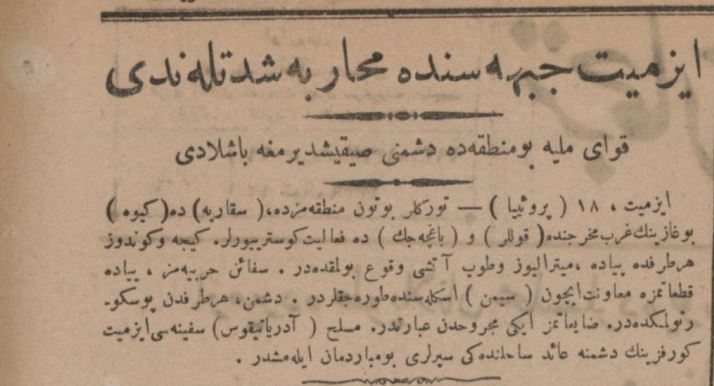 ایزمیت جبهه سنده محاربه شدتله ندی
قوای ملیه بو منطقه ده دشمنی صیقیشدیرمغه باشلادی
ایزمیت، ١٨ ( پروئیا ) — تورکلر بوتون منطقه مزده، ( سقاریه ) ده ( کیوه )
بوغازینك غرب مخرجنده ( قوللر ) و ( باغچه جك ) ده فعالیت کوسترییورلر. کیجه وکوندوز
هرطرفده پیاده، میترالیوز وطوپ آتشی وقوع بولمقده در . سفائن حربیه مز ، پیاده
قطعاتمزه معاونت ایچون ( سیمن ) اسکله سنده طوره جقلردر . دشمن، هرطرفدن پوسکو-
رتولمکده در. ضایعاتمز ایکی مجروحدن عبارتدر. مسلح ( آدریاتیقوس ) سفینه سی ایزمیت
کورفزینك دشمنه عائد ساحلنده کی سپرلری بومباردمان ایله مشدر .